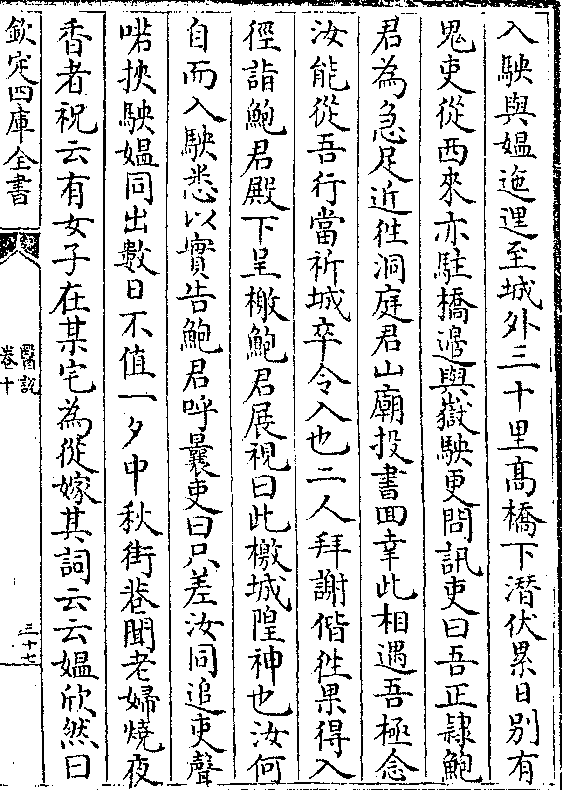 入駃與媪迤逦至城外三十里髙橋下潜伏累日别有
鬼吏從西來亦駐橋邉與嶽駃更問訊吏曰吾正隷鮑
君為急足近徃洞庭君山廟投書囬幸此相遇吾極念
汝能從吾行當祈城卒令入也二人拜謝偕徃果得入
徑詣鮑君殿下呈檄鮑君展視曰此檄城隍神也汝何
自而入駃悉以實告鮑君呼曩吏曰只差汝同追吏聲
喏挾駃媪同出數日不值一夕中秋街巷聞老婦燒夜
香者祝云有女子在某宅為從嫁其詞云云媪欣然曰
欽定四庫全書
醫説
卷十
三十七